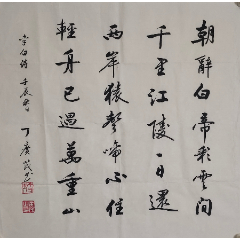 朝辭白帝彩雲間
千里江陵一日還
两岸猿聲啼不住
輕舟已過萬重山
李白詩 壬辰